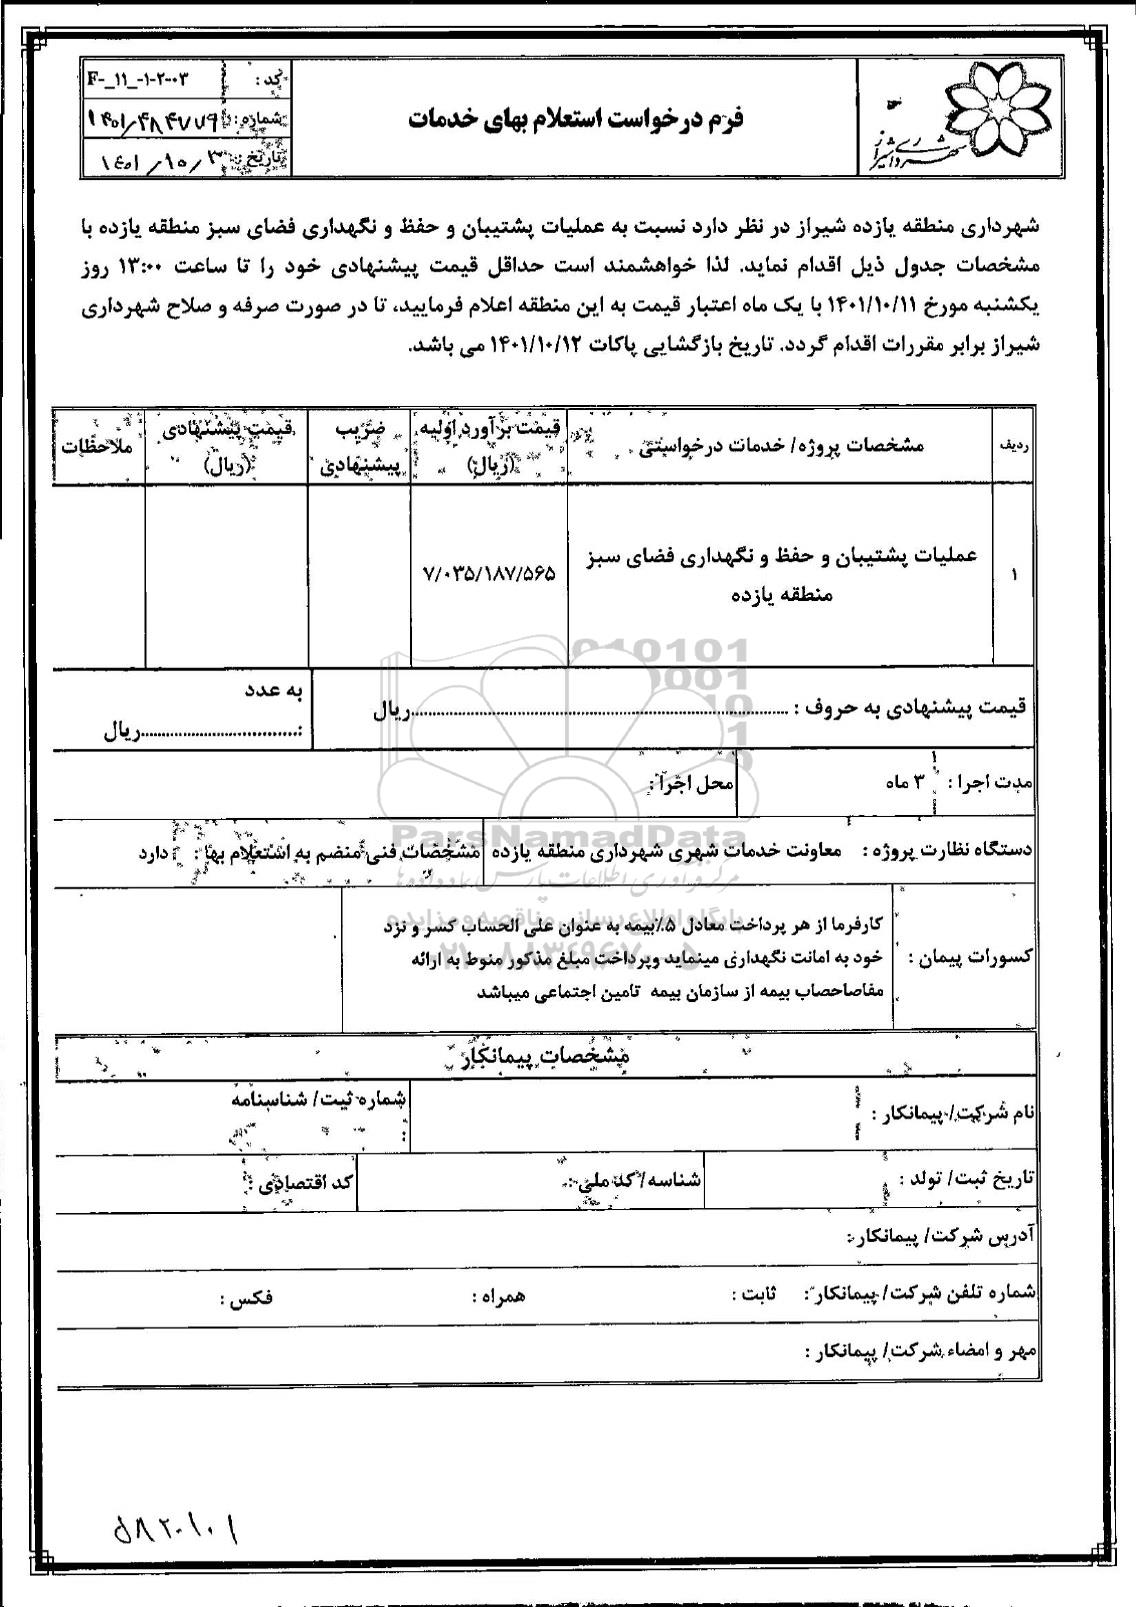 شهرداری شیراز
فرم درخواست استعلام بهای خدمات
کد: F-_11_-۱-۲-۰۳
شماره: ۱۴۰۱/۴۸۴۷۷۹
تاریخ: ۱۴۰۱/۱۰/۳
شهرداری منطقه یازده شیراز در نظر دارد نسبت به عملیات پشتیبان و حفظ و نگهداری فضای سبز منطقه یازده با
مشخصات جدول ذیل اقدام نماید. لذا خواهشمند است حداقل قیمت پیشنهادی خود را تا ساعت ۱۳:۰۰ روز
یکشنبه مورخ ۱۴۰۱/۱۰/۱۱ با یک ماه اعتبار قیمت به این منطقه اعلام فرمایید، تا در صورت صرفه و صلاح شهرداری
شیراز برابر مقررات اقدام گردد. تاریخ بازگشایی پاکات ۱۴۰۱/۱۰/۱۲ می باشد.
ردیف مشخصات پروژه/ خدمات درخواستی قیمت برآورد اولیه (ریال) ضریب پیشنهادی قیمت پیشنهادی (ریال) ملاحظات
۱ عملیات پشتیبان و حفظ و نگهداری فضای سبز ۷/۰۳۵/۱۸۷/۵۶۵
منطقه یازده
قیمت پیشنهادی به حروف : ........................ریال به عدد
:........................ریال
مدت اجرا : ۳ ماه محل اجرا :
دستگاه نظارت پروژه : معاونت خدمات شهری شهرداری منطقه یازده مشخصات فنی منضم به استعلام بها : دارد
کسورات پیمان : کارفرما از هر پرداخت معادل ۵٪بیمه به عنوان علی الحساب کسر و نزد
خود به امانت نگهداری مینماید وپرداخت مبلغ مذکور منوط به ارائه
مفاصاحصاب بیمه از سازمان بیمه تامین اجتماعی میباشد
مشخصات پیمانکار
نام شرکت/ پیمانکار : شماره ثبت/ شناسنامه :
تاریخ ثبت/ تولد : شناسه/ کد ملی : کد اقتصادی :
آدرس شرکت/ پیمانکار:
شماره تلفن شرکت/ پیمانکار : ثابت : همراه : فکس :
مهر و امضاء شرکت/ پیمانکار :
ParsNamadData
مرکز فرآوری اطلاعات پارس نماد داده ها
پایگاه اطلاع رسانی مناقصه و مزایده
۰۲۱-۸۸۳۴۹۶۷۰-۵